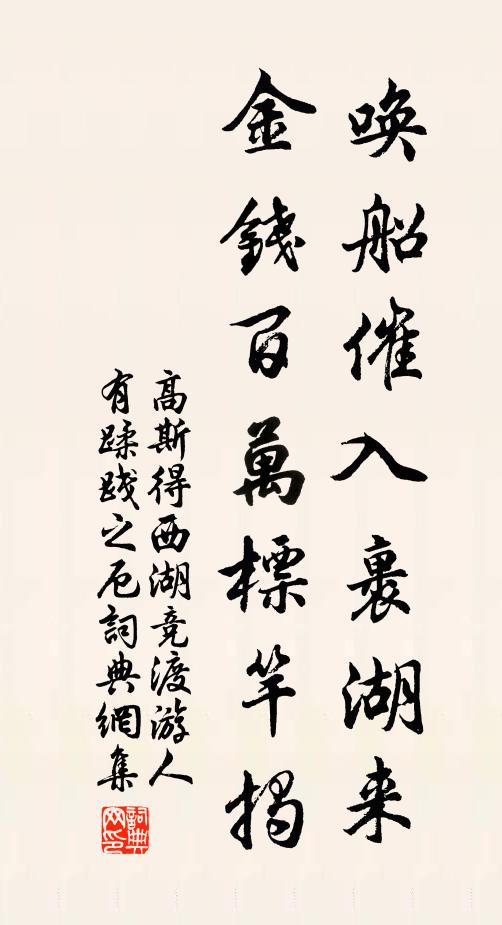 唤船催入裹湖来
金錢百萬標竿揭
高斯得西湖竞渡游人
有蹂践之厄詞典網集
詞典網印